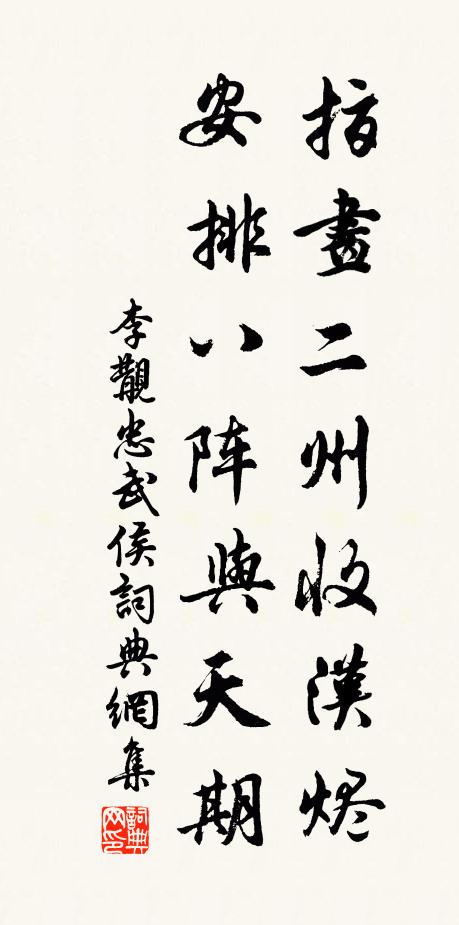 指畫二州收漢烬
安排八阵與天期
李觀忠武侯詞典網集
詞典网印